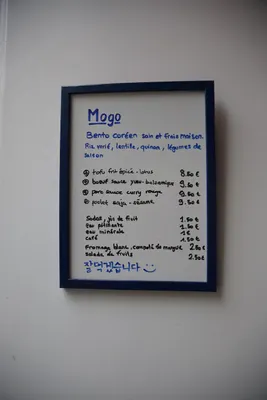 Mogo
Bento coréen sain et frais maison.
Riz varié, lentille, quinoa, légumes de
saison
tofu frit épicé - lotus 8.50 €
boeuf sauce yuzu-balsamique 9.50 €
porc sauce curry rouge 8.50 €
poulet soja - sésame 9.50 €
Sodas, jus de fruit 1.50 €
Eau pétillante 1.50 €
eau minérale 1 €
café 1.50 €
Fromage blanc, compote de mangue 2.50 €
salade de fruits 2.50 €
잘먹겠습니다